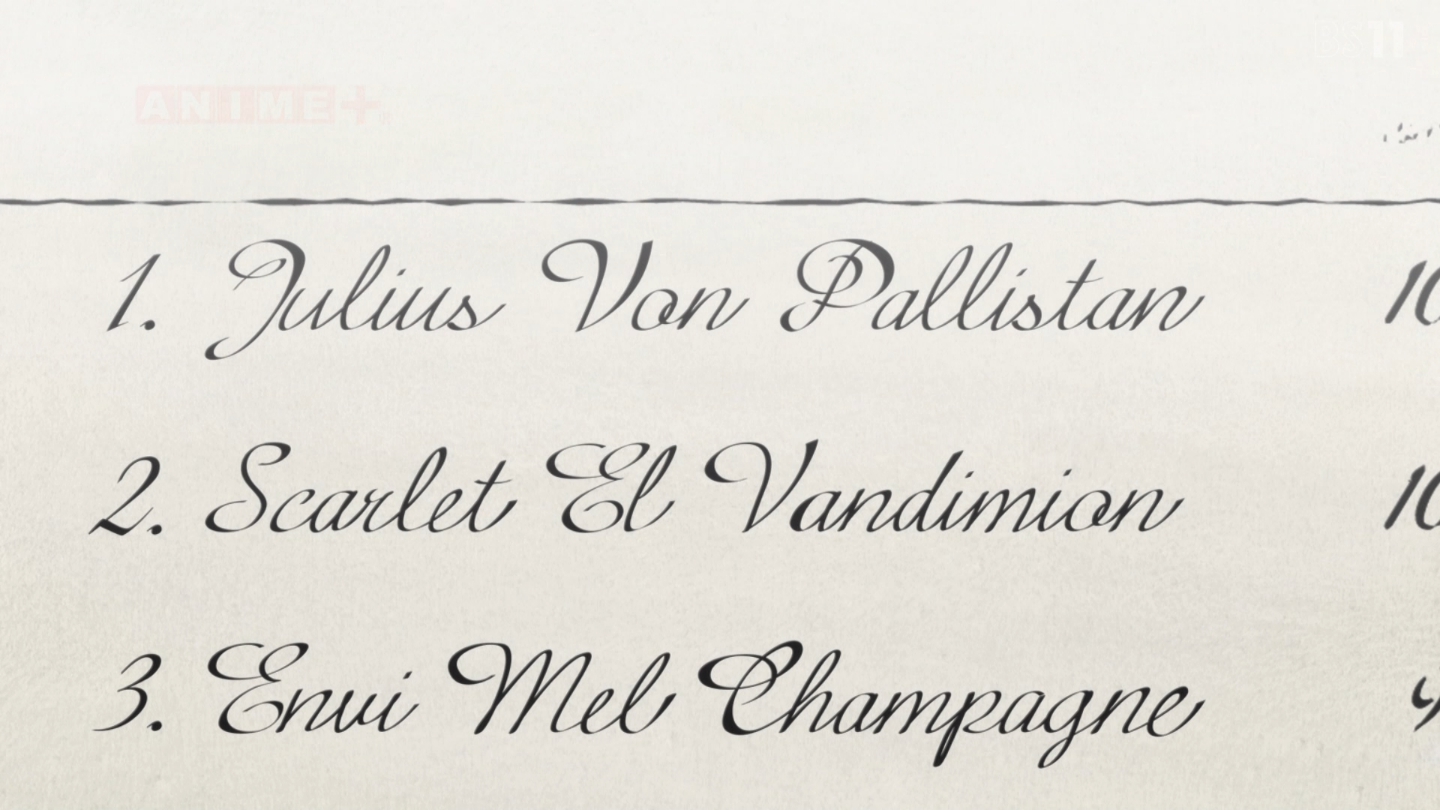 ANIME+
11
1. Julius Von Pallistan 10
2. Scarlet El Vandimion 10
3. Envi Mel Champagne